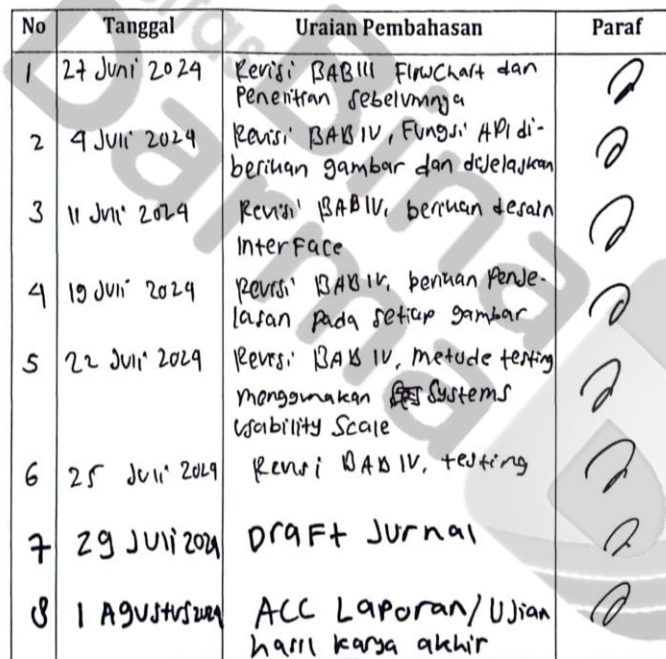 No Tanggal Uraian Pembahasan Paraf
1 27 Juni 2024 Revisi BAB III FlowChart dan
Penelitian sebelumnya
2 4 Juli 2024 Revisi BAB IV, Fungsi API di-
berikan gambar dan dijelaskan
3 11 Juli 2024 Revisi BAB IV, berikan desain
InterFace
4 19 Juli 2024 Revisi BAB IV, berikan Penje-
lasan pada setiap gambar
5 22 Juli 2024 Revisi BAB IV, metode testing
menggunakan Systems
Usability Scale
6 25 Juli 2024 Revisi BAB IV, testing
7 29 Juli 2024 Draft Jurnal
8 1 Agustus 2024 ACC Laporan/Ujian
hasil karya akhir
Bina
Darma